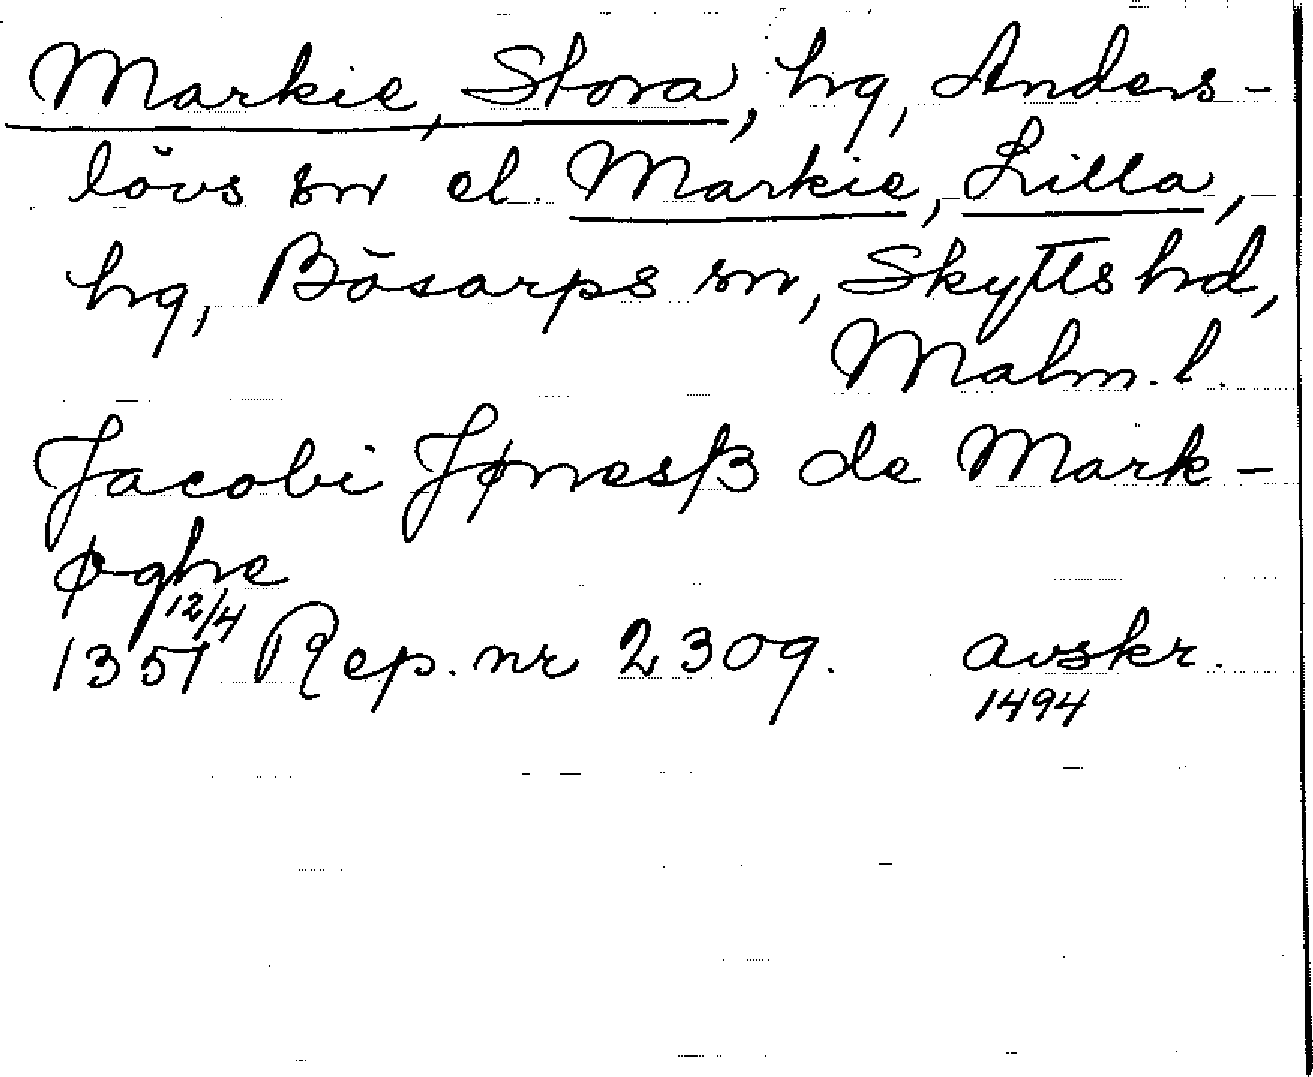 Markie, Stora, hg, Anders-
lövs sn el. Markie, Lilla,
hg, Bösarps sn, Skytts hd,
Malm. l.
Jacobi Jønesß de Mark-
øghe
12/4
1357 Rep. nr 2309. avskr.
1494